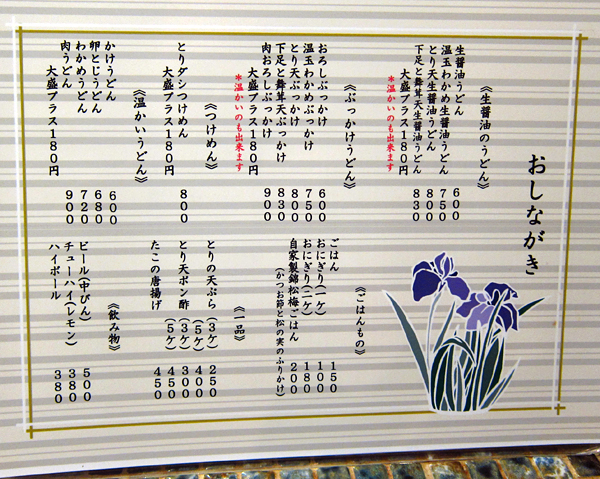 おしながき
《生醤油のうどん》
生醤油うどん 600
温玉わかめ生醤油うどん 750
とり天生醤油うどん 800
下足と舞茸天生醤油うどん 830
大盛プラス180円
*温かいのも出来ます
《ぶっかけうどん》
おろしぶっかけ 600
温玉わかめぶっかけ 750
とり天ぶっかけ 800
下足と舞茸天ぶっかけ 830
肉おろしぶっかけ 900
大盛プラス180円
*温かいのも出来ます
《つけめん》
とりダシつけめん 800
大盛プラス180円
《温かいうどん》
かけうどん 600
卵とじうどん 680
わかめうどん 720
肉うどん 900
大盛プラス180円
《ごはんもの》
ごはん 150
おにぎり(一ケ) 100
おにぎり(二ケ) 180
自家製錦松梅ごはん 200
(かつお節と松の実のふりかけ)
《一品》
とりの天ぷら(3ケ) 250
(5ケ) 400
とり天ポン酢(3ケ) 300
(5ケ) 450
たこの唐揚げ 450
《飲み物》
ビール(中びん) 500
チューハイ(レモン) 380
ハイボール 380